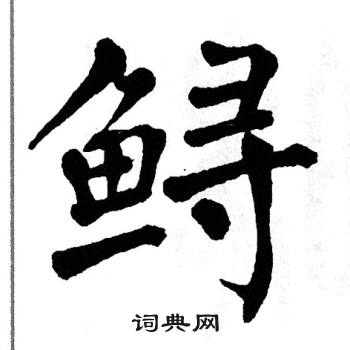 鲟
词典网